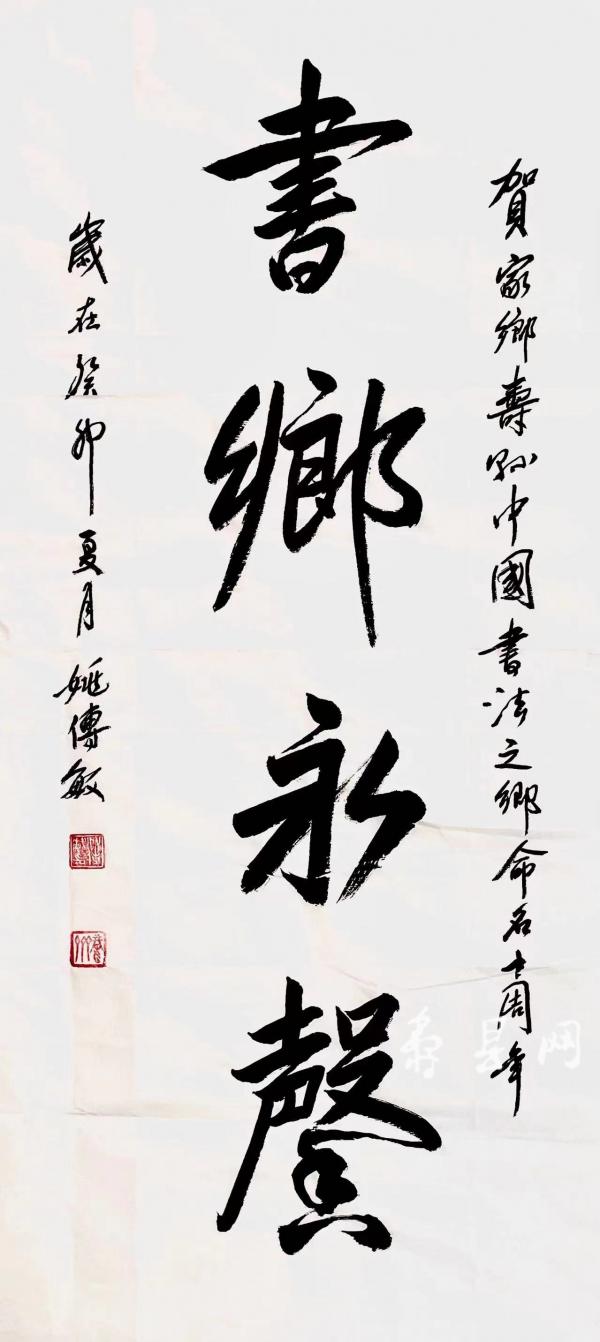 賀家鄉壽縣中國書法之鄉命名十周年
書鄉永馨
歲在癸卯夏月
姚傳敏
寿县网